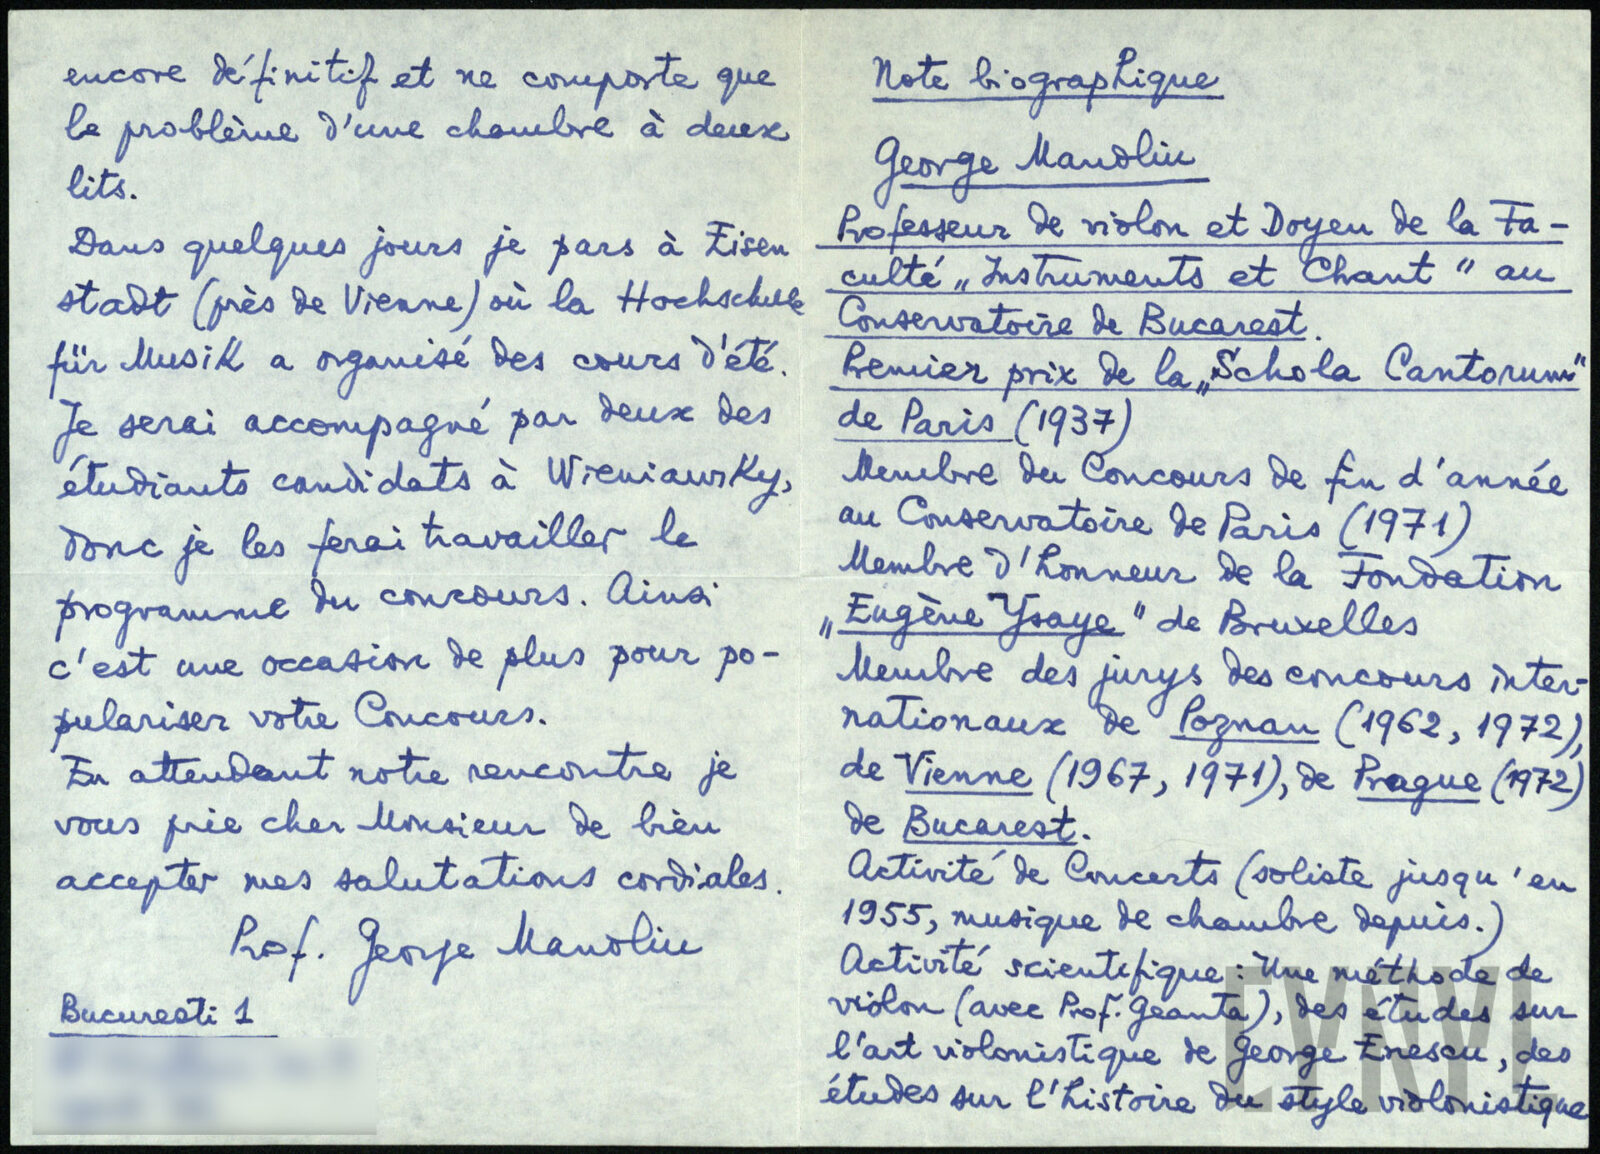 encore définitif et ne comporte que
le problème d'une chambre à deux
lits.
Dans quelques jours je pars à Eisen
stadt (près de Vienne) où la Hochschule
für Musik a organisé des cours d'été.
Je serai accompagné par deux des
étudiants candidats à Wieniawsky,
donc je les ferai travailler le
programme du concours. Ainsi
c'est une occasion de plus pour po-
pulariser votre Concours.
En attendant notre rencontre je
vous prie cher Monsieur de bien
accepter mes salutations cordiales.
Prof. George Manoliu
Bucuresti 1
Note biographique
George Manoliu
Professeur de violon et Doyen de la Fa-
culté „Instruments et Chant" au
Conservatoire de Bucarest.
Premier prix de la „Schola Cantorum"
de Paris (1937)
Membre du Concours de fin d'année
au Conservatoire de Paris (1971)
Membre d'honneur de la Fondation
„Eugène Ysaye" de Bruxelles
Membre des jurys des concours inter-
nationaux de Poznan (1962, 1972),
de Vienne (1967, 1971), de Prague (1972)
de Bucarest.
Activité de Concerts (soliste jusqu'en
1955, musique de chambre depuis.)
Activité scientifique: Une méthode de
violon (avec Prof. Geanta), des études sur
l'art violonistique de George Enescu, des
études sur l'histoire du style violonistique